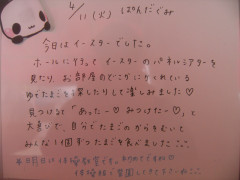 4/11(火) ぱんだぐみ
今日はイースターでした。
ホールに行って イースターの パネルシアターを
見たり、お部屋のどこかにかくれている
ゆでたまごを探したりして楽しみました♡
見つけると「あったー♡みつけたー♡」と
大喜びで、自分でたまごのからをむいて
みんな1個ずつたまごを食べました
*明日は